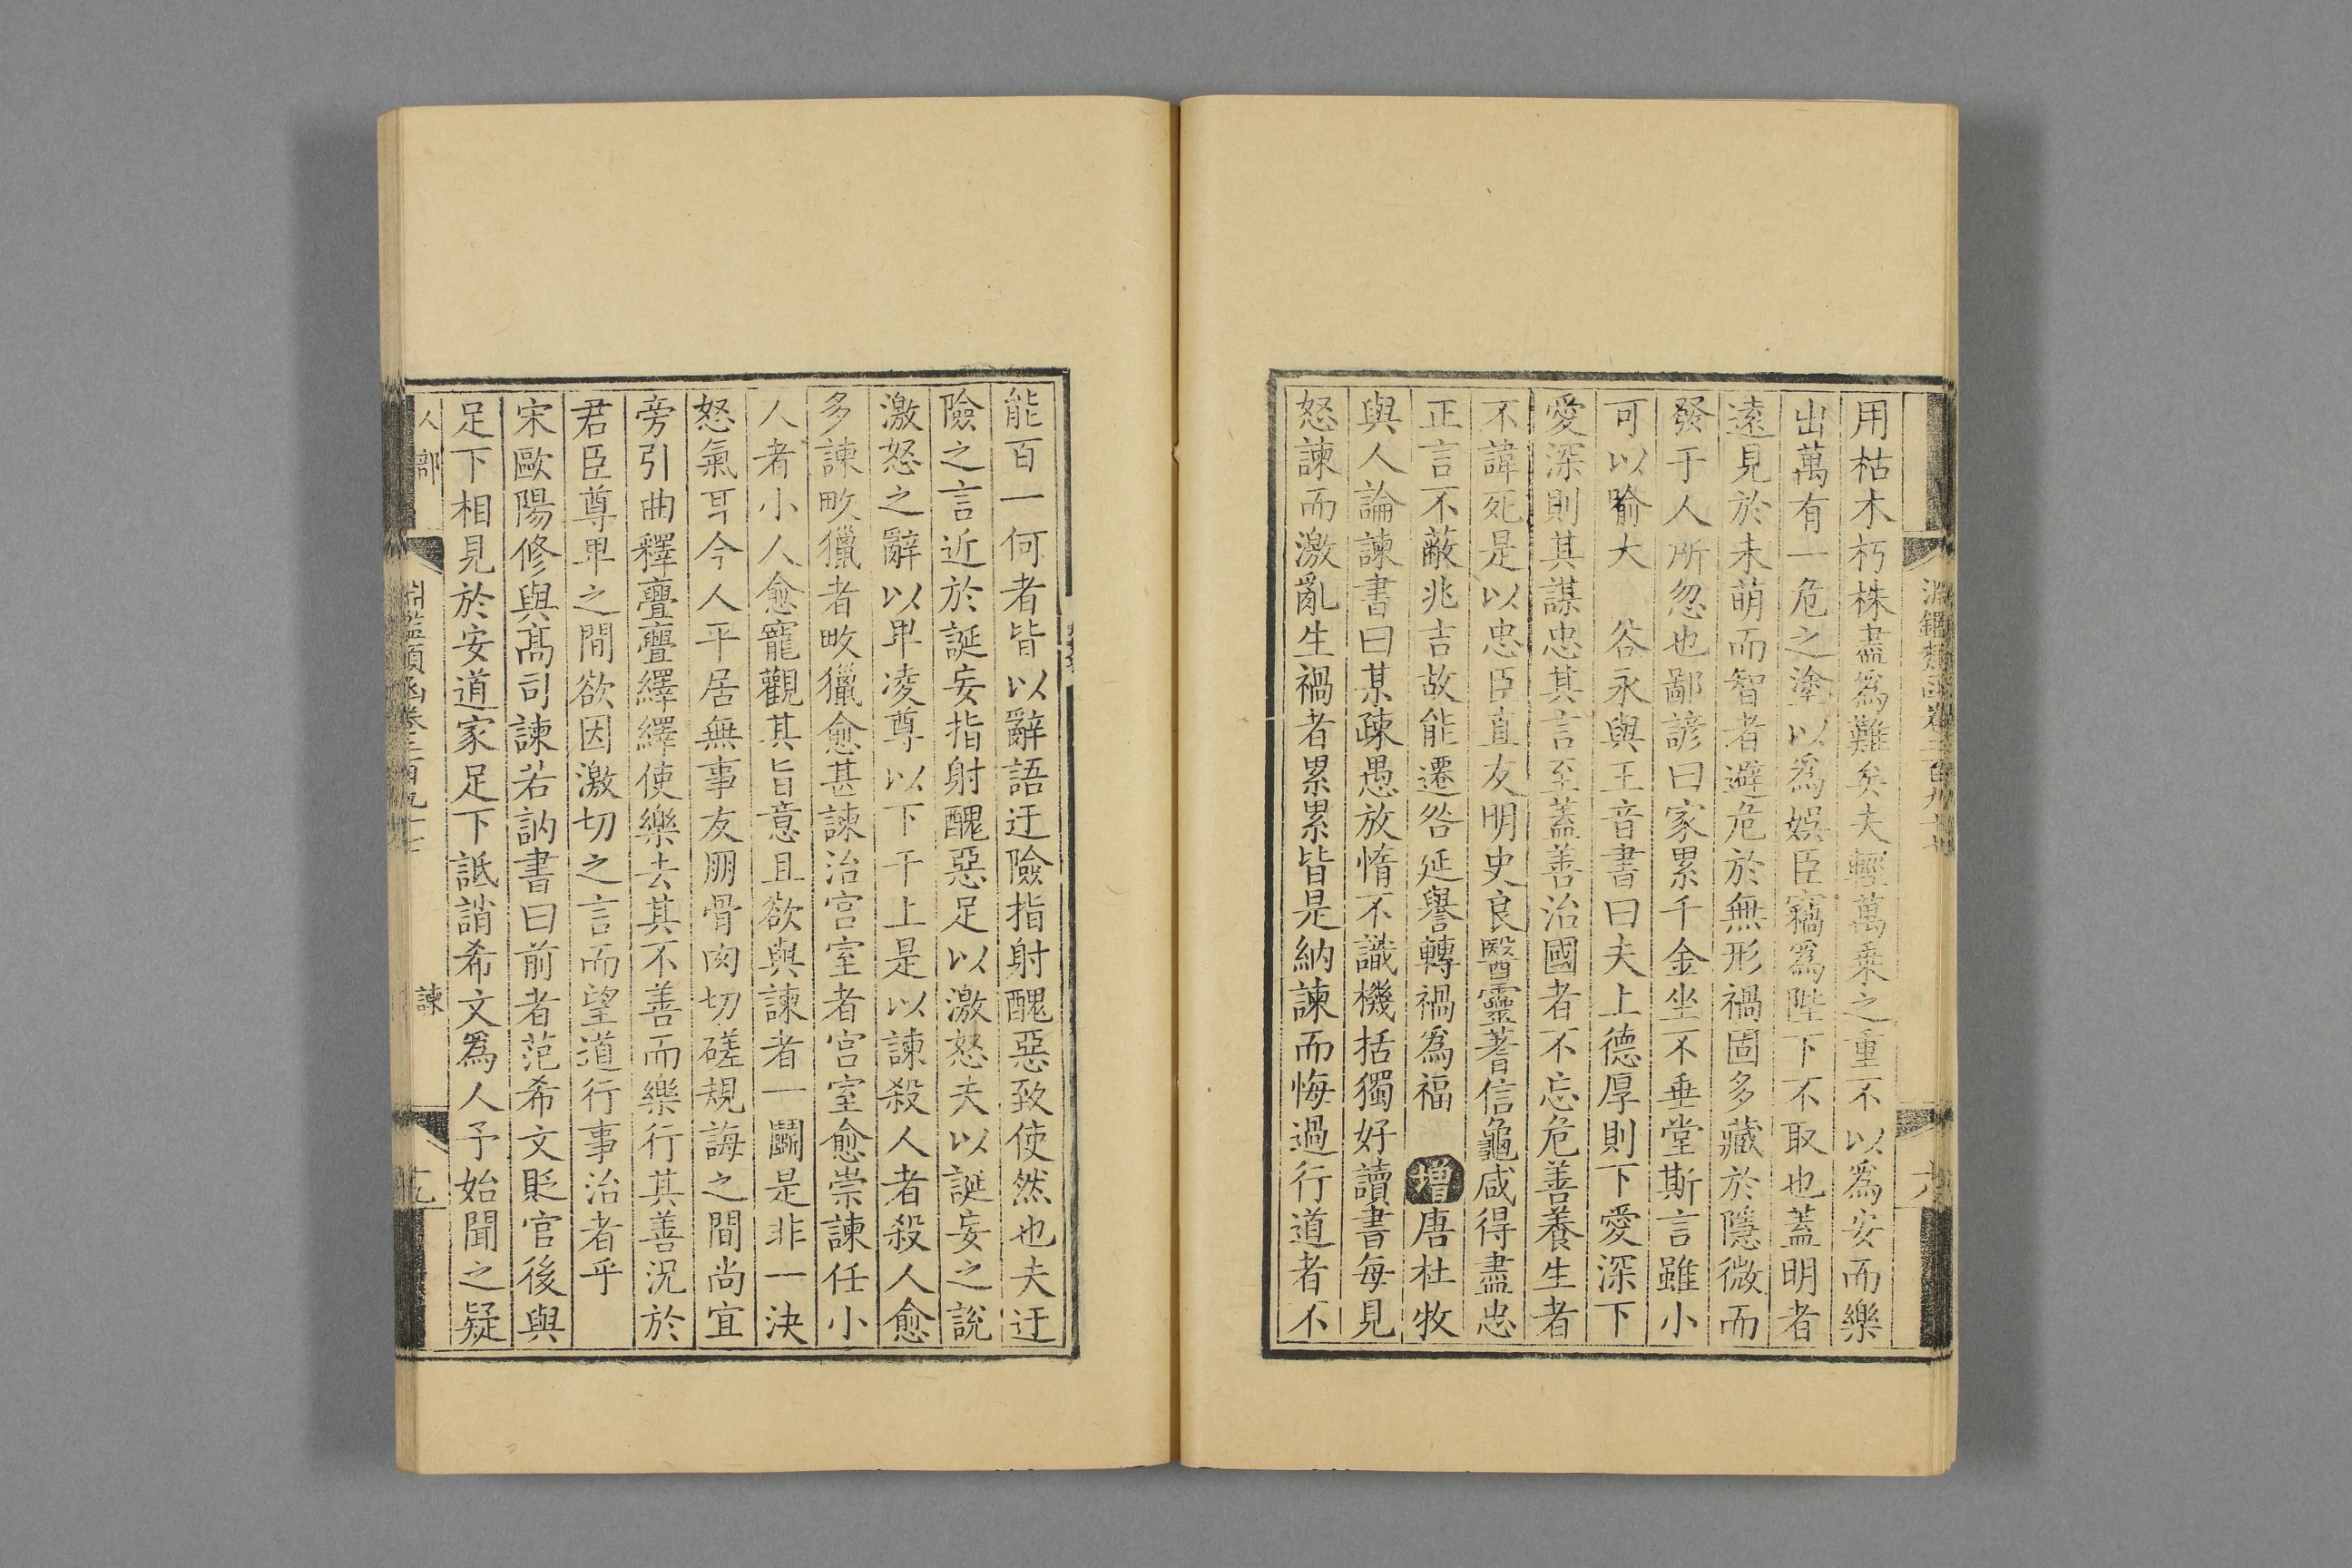 用枯木朽株盡爲難矣夫輕萬乗之重不以爲安而樂
出萬有一危之塗以爲娛臣竊爲陛下不取也蓋明者
遠見於未萌而智者避危於無形禍固多藏於隱微而
發于人所忽也鄙諺曰家累千金坐不垂堂斯言雖小
可以喻大　谷永與王音書曰夫上德厚則下愛深下
愛深則其謀忠其言至蓋善治國者不忘危善養生者
不諱死是以忠臣直友明史良醫靈蓍信龜咸得盡忠
正言不蔽兆吉故能遷咎延譽轉禍爲福　增唐杜牧
與人論諫書曰某疎愚放惰不識機括獨好讀書每見
怒諫而激亂生禍者累累皆是納諫而悔過行道者不
能百一何者皆以辭語迂險指射醜惡致使然也夫迂
險之言近於誕妄指射醜惡足以激怒夫以誕妄之說
激怒之辭以卑凌尊以下干上是以諫殺人者殺人愈
多諫畋獵者畋獵愈甚諫治宫室者宫室愈崇諫任小
人者小人愈寵觀其旨意且欲與諫者一鬭是非一決
怒氣耳今人平居無事友朋骨肉切磋規誨之間尚宜
旁引曲釋亹亹繹繹使樂去其不善而樂行其善況於
君臣尊卑之間欲因激切之言而望道行事治者乎
宋歐陽修與髙司諫若訥書曰前者范希文貶官後與
足下相見於安道家足下詆誚希文爲人予始聞之疑
人部
淵鑑類函卷二百九十七
諫